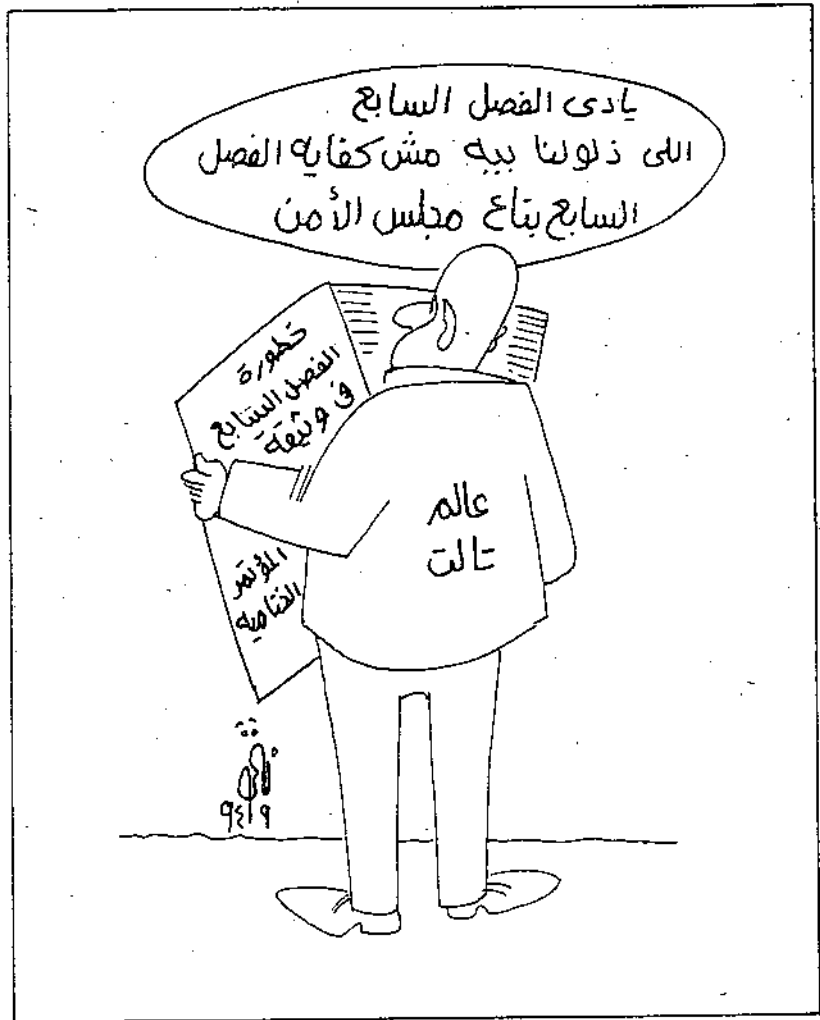 يادى الفصل السابع
اللى ذلولنا بيه مش كفايه الفصل
السابع بتاع مجلس الأمن
خطورة
الفصل السابع
فى وثيقة
المؤتمر
الختاميه
عالم
تالت
٩٤/٩